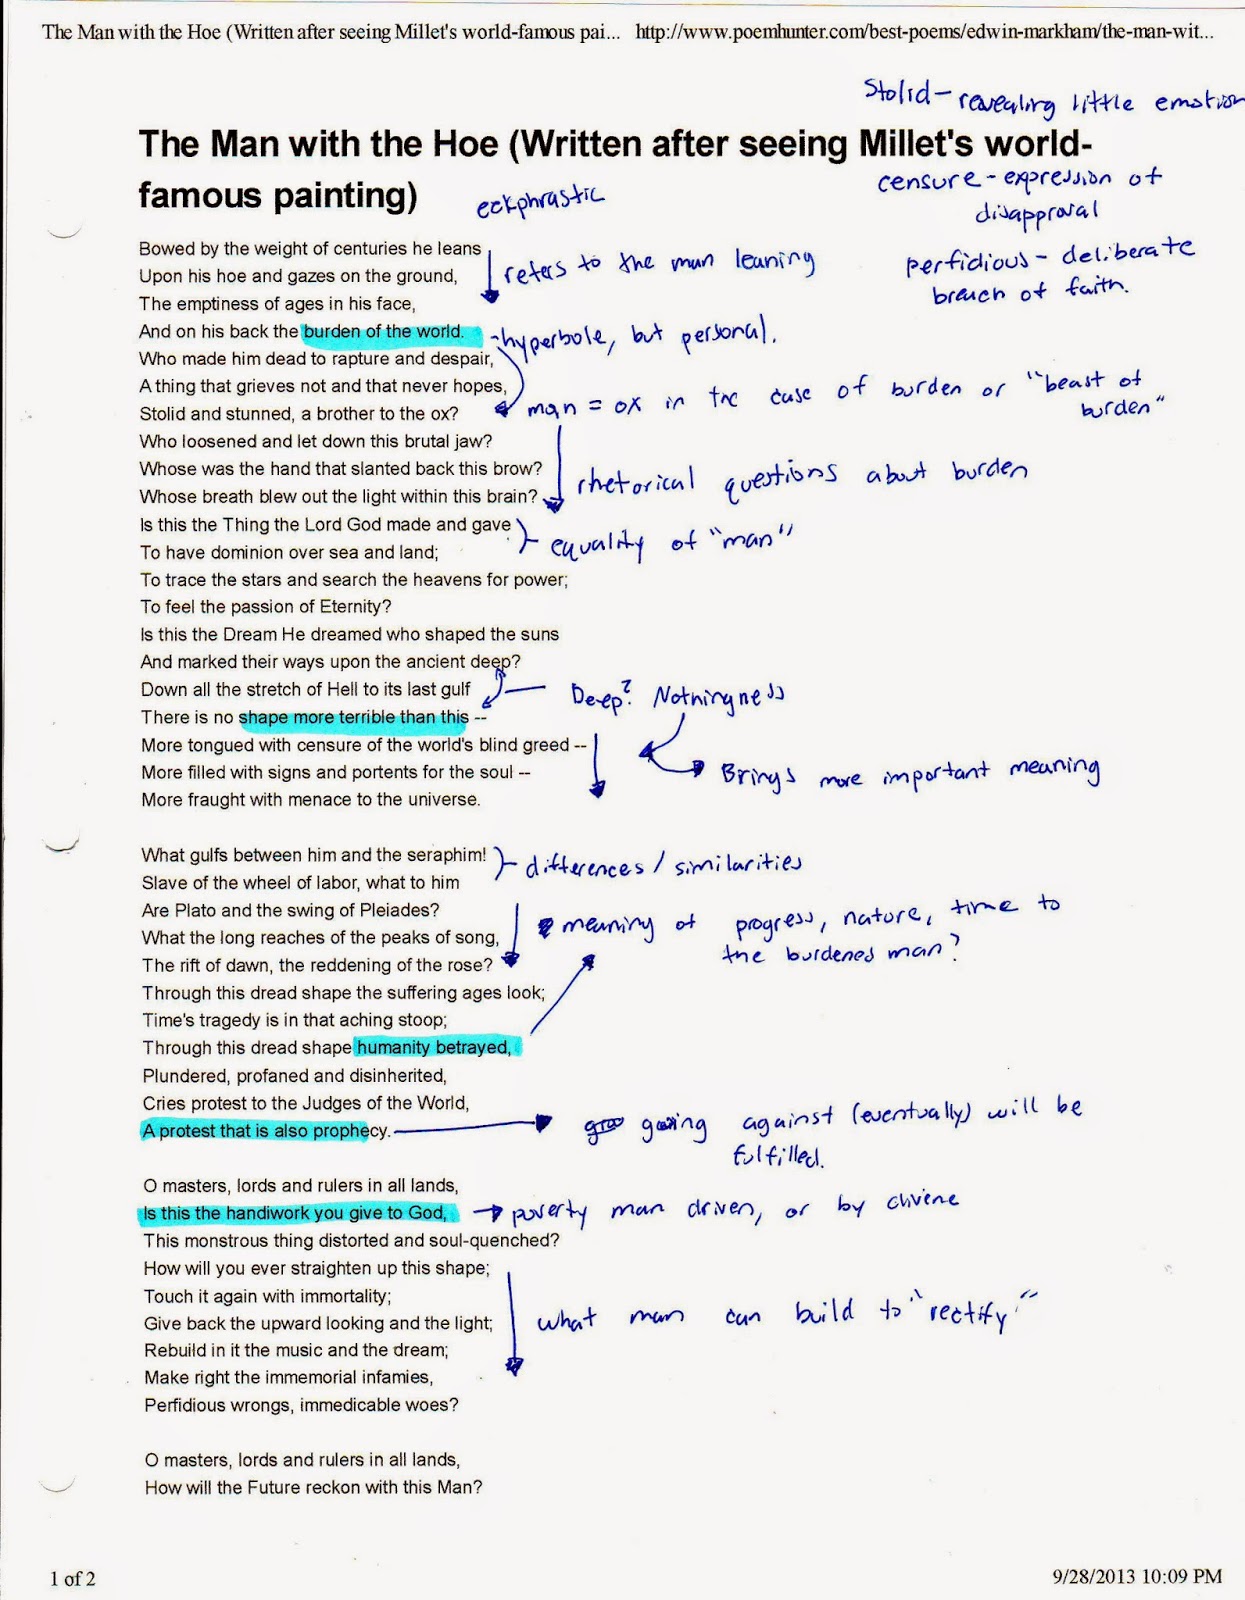 The Man with the Hoe (Written after seeing Millet's world-famous pai... http://www.poemhunter.com/best-poems/edwin-markham/the-man-wit...
Stolid - revealing little emotion
The Man with the Hoe (Written after seeing Millet's world-
famous painting)
eckphrastic
censure - expression of
disapproval
perfidious - deliberate
breach of faith.
Bowed by the weight of centuries he leans
Upon his hoe and gazes on the ground,
refers to the man leaning
The emptiness of ages in his face,
And on his back the burden of the world.
- hyperbole, but personal.
Who made him dead to rapture and despair,
A thing that grieves not and that never hopes,
Stolid and stunned, a brother to the ox?
man = ox in the case of burden or "beast of
burden"
Who loosened and let down this brutal jaw?
Whose was the hand that slanted back this brow?
Whose breath blew out the light within this brain?
rhetorical questions about burden
Is this the Thing the Lord God made and gave
To have dominion over sea and land;
equality of "man"
To trace the stars and search the heavens for power;
To feel the passion of Eternity?
Is this the Dream He dreamed who shaped the suns
And marked their ways upon the ancient deep?
Down all the stretch of Hell to its last gulf
Deep? Nothingness
There is no shape more terrible than this --
More tongued with censure of the world's blind greed --
More filled with signs and portents for the soul --
Brings more important meaning
More fraught with menace to the universe.
What gulfs between him and the seraphim!
differences / similarities
Slave of the wheel of labor, what to him
Are Plato and the swing of Pleiades?
meaning of progress, nature, time to
the burdened man?
What the long reaches of the peaks of song,
The rift of dawn, the reddening of the rose?
Through this dread shape the suffering ages look;
Time's tragedy is in that aching stoop;
Through this dread shape humanity betrayed,
Plundered, profaned and disinherited,
Cries protest to the Judges of the World,
A protest that is also prophecy.
going against (eventually) will be
fulfilled.
O masters, lords and rulers in all lands,
Is this the handiwork you give to God,
poverty man driven, or by divine
This monstrous thing distorted and soul-quenched?
How will you ever straighten up this shape;
Touch it again with immortality;
Give back the upward looking and the light;
what man can build to "rectify"
Rebuild in it the music and the dream;
Make right the immemorial infamies,
Perfidious wrongs, immedicable woes?
O masters, lords and rulers in all lands,
How will the Future reckon with this Man?
1 of 2
9/28/2013 10:09 PM